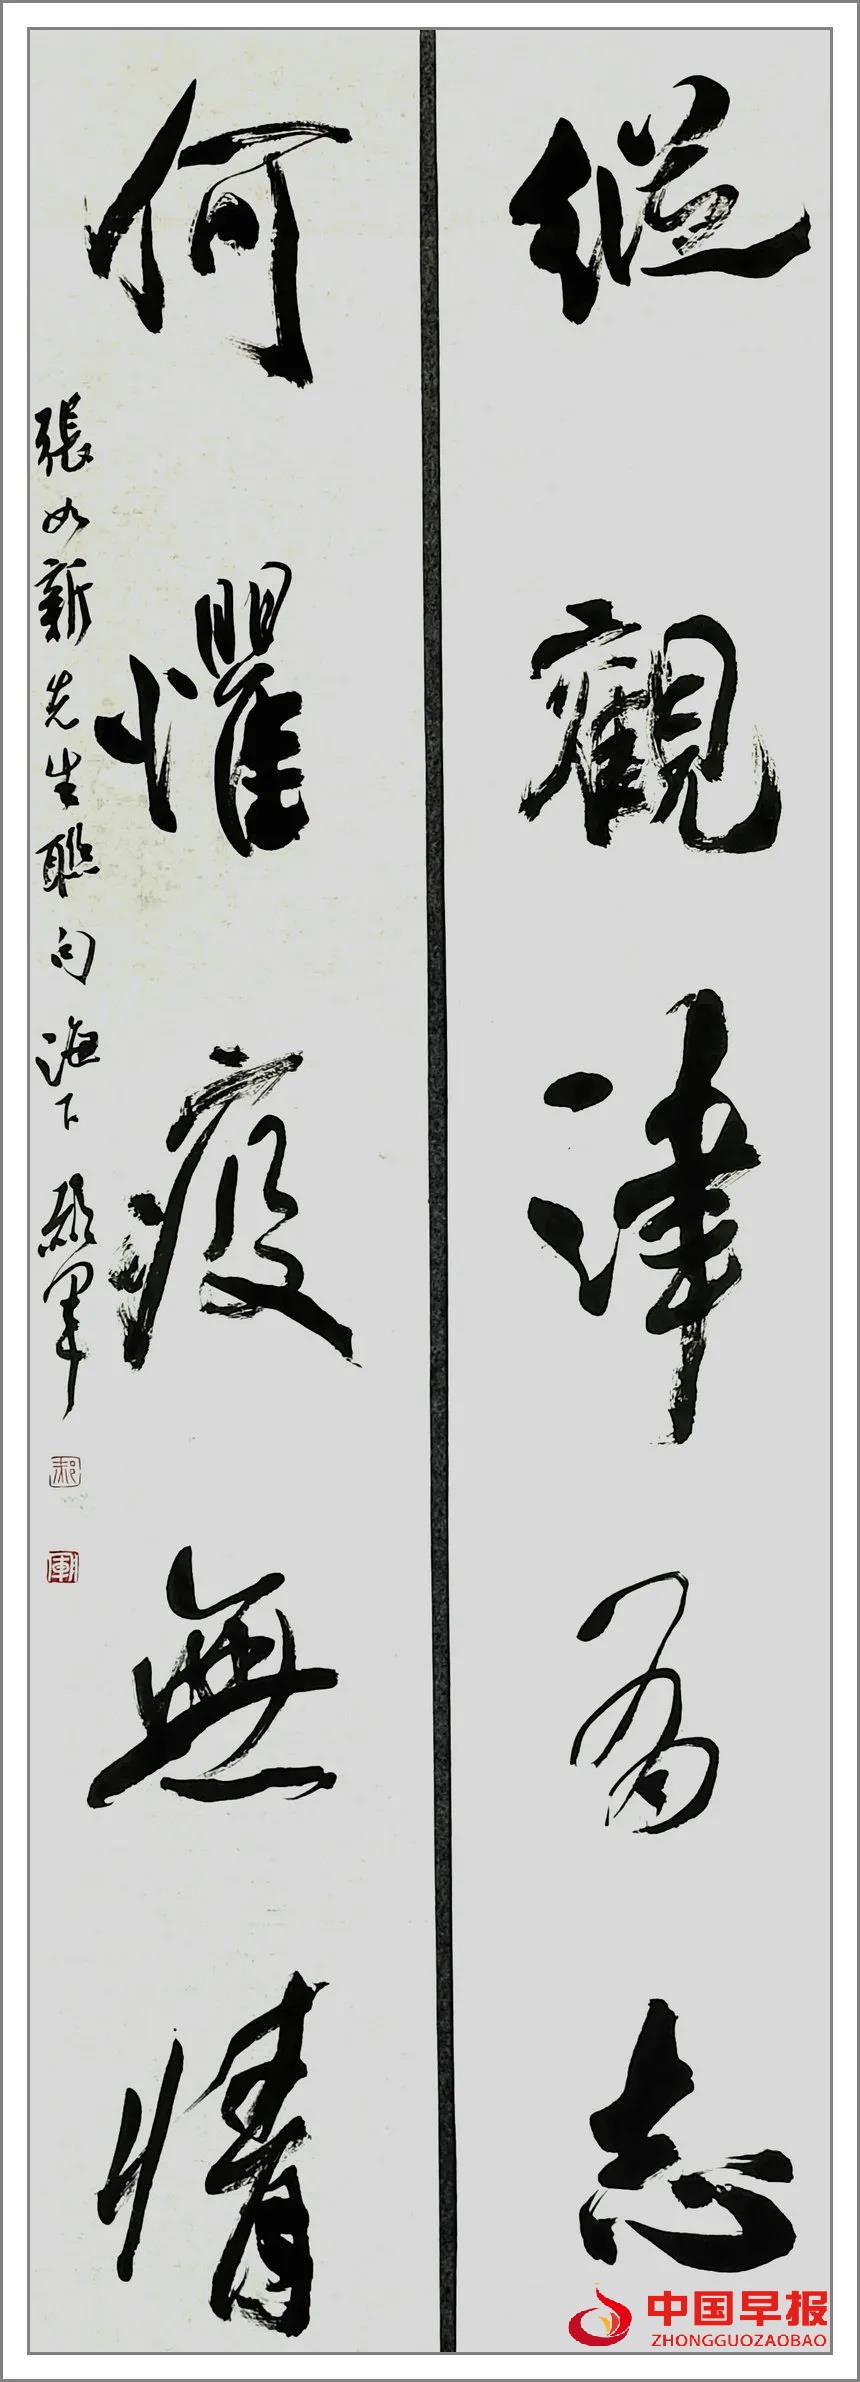 縱觀津有志
何懼疫無情
張如新先生聯句海下郝軍
中国早报
ZHONGGUOZAOBAO